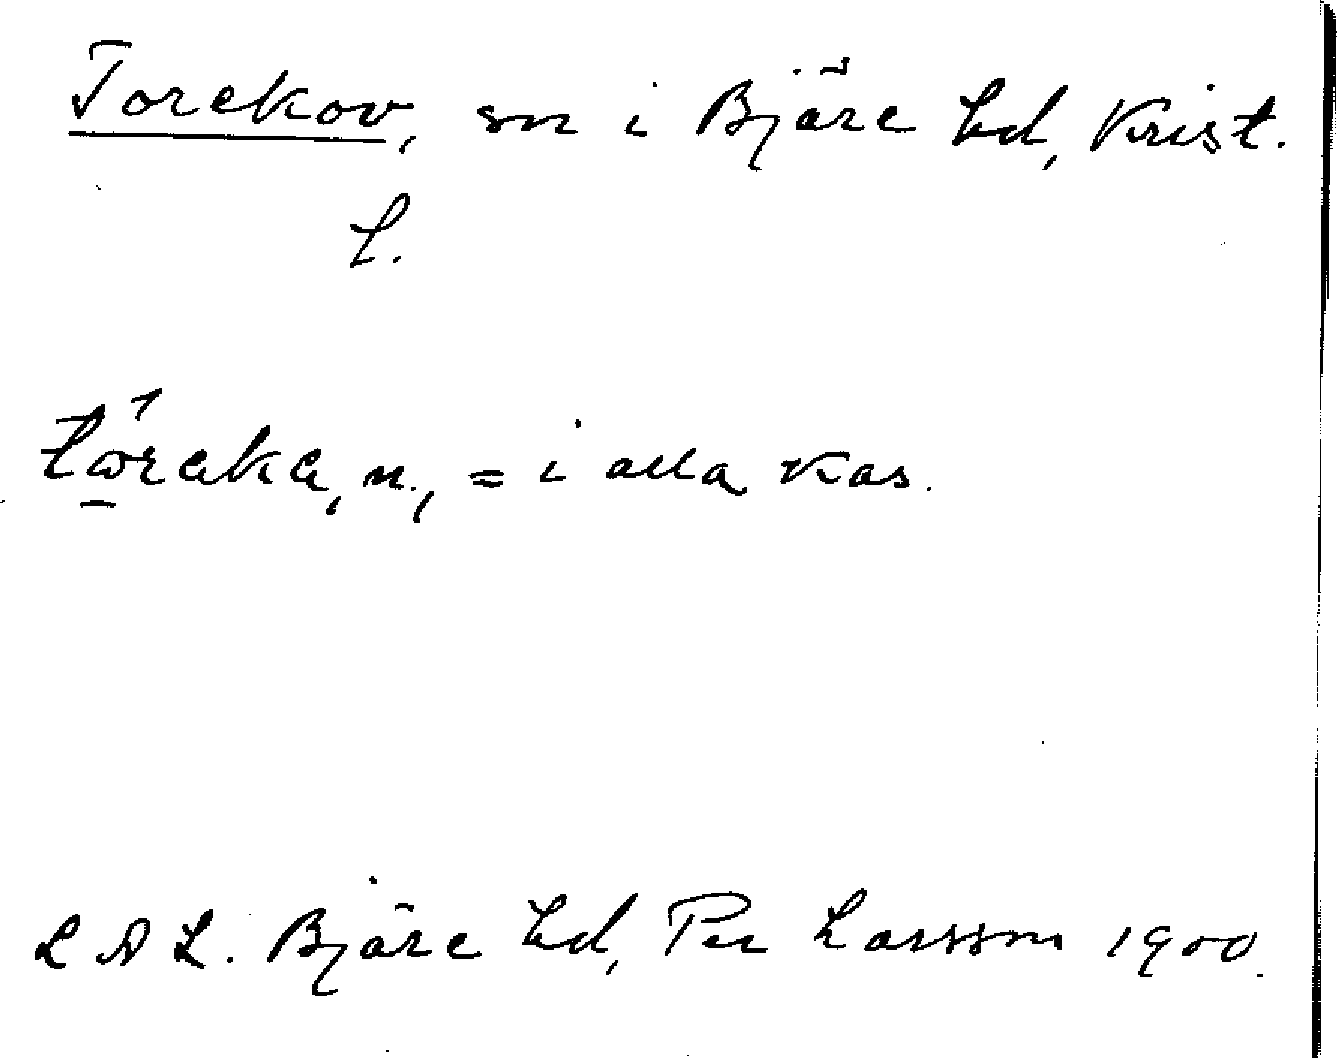 Torekov, sn i Bjäre hd, Krist.
l.
n., = i alla kas.
L A L. Bjäre hd, Per Larsson 1900.